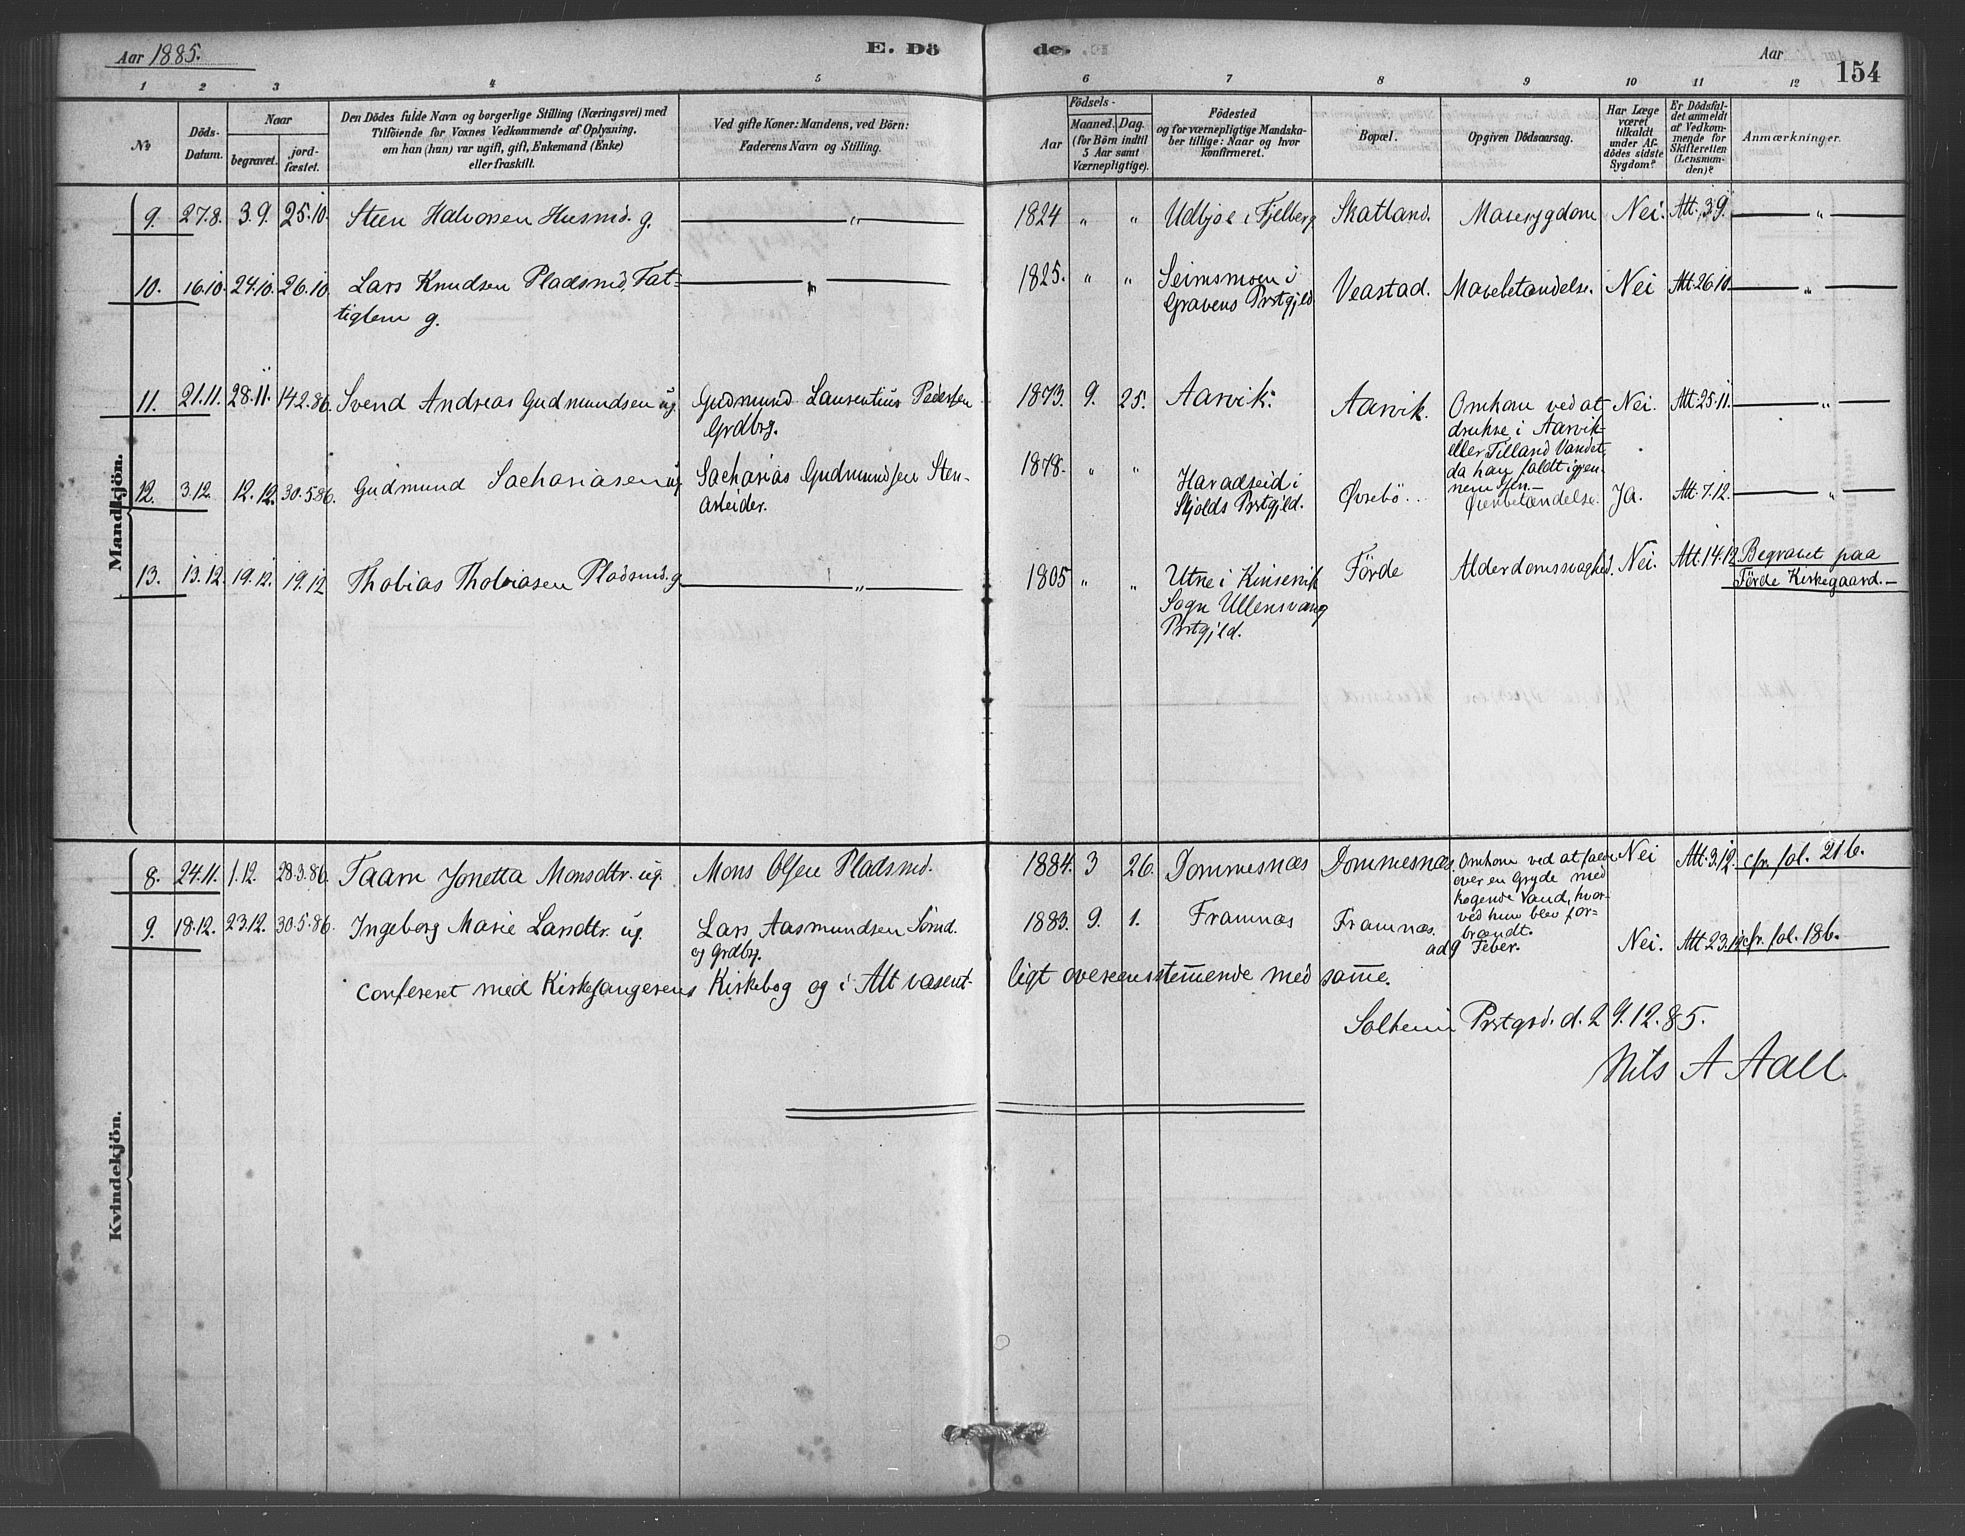 Aar 1885.
E. Dö
de.
Aar
154
1 2 3 4 5 6 7 8 9 10 11 12
No
Döds-
Datum.
Naar
begravet.
jord-
fæstet.
Den Dödes fulde Navn og borgerlige Stilling (Næringsvei) med
Tilföiende for Voxnes Vedkommende af Oplysning,
om han (hun) var ugift, gift, Enkemand (Enke)
eller fraskilt.
Ved gifte Koner: Mandens, ved Börn:
Faderens Navn og Stilling.
Födsels-
Aar
Maaned. Dag.
(for Börn indtil
5 Aar samt
Værnepligtige).
Födested
og for værnepligtige Mandska-
ber tillige: Naar og hvor
Konfirmeret.
Bopæl.
Opgiven Dödsaarsag.
Har Læge
været
tilkaldt
under Af-
dödes sidste
Sygdom?
Er Dödsfal-
det anmeldt
af Vedkom-
mende for
Skifteretten
(Lensman-
den)?
Anmærkninger.
Mandkjön.
9. 27.8. 3.9. 25.10. Steen Halvorsen Husmd. g. — „ — 1824 „ „ Udbjoe i Fjelberg Skatland. Mavesygdom Nei. Att. 3.9. — „ —
10. 16.10. 24.10. 26.10. Lars Knudsen Pladsmd, Fat- — „ — 1825. „ „ Seimsmoen i Veastad. Mavebetændelse. Nei Att. 26.10. — „ —
tiglem g. Gravens Prstgjeld
11. 21.11. 28.11. 14.2.86. Svend Andreas Gudmundsen ug. Gudmund Laurentius Pedersen 1873. 9. 25. Aarvik. Aarvik. Omkom ved at Nei. Att. 25.11. — „ —
Grdbrg. drukne i Aarvik-
eller Tilland Vandet,
da han faldt igjen-
nem Isen.
12. 3.12. 12.12. 30.5.86. Gudmund Sachariasen ug Sacharias Gudmundsen Sten- 1878. „ „ Haradseid i Øvrebö. betændelse. Ja. Att. 7.12. — „ —
arbeider. Skjolds Prstgjld.
13. 13.12. 19.12. 19.12 Thobias Thobiasen Pladsmd. g — „ — 1805 „ „ Utne i Kinservik Förde Alderdomssvaghed. Nei. Att. 14.12 Begravet paa
Sogn Ullensvang Förde Kirkegaard.—
Prstgjld.
Kvindekjön.
8. 24.11. 1.12. 28.3.86. Taam Jonetta Monsdtr. ug. Mons Olsen Pladsmd. 1884. 3 26. Dommesnæs Dommesnæs. Omkom ved at falde Nei Att. 3.12. cfr. fol. 216.
over en Gryde med
kogende Vand, hvor-
ved hun blev for-
brændt.
9. 18.12. 23.12. 30.5.86. Ingeborg Marie Larsdtr. ug. Lars Aasmundsen Smd. 1883. 9. 1. Framnæs Framnæs. ad 9 Feber. Nei. Att. 23.12 cfr. fol. 186.
og Grdbrg.
Confereret med Kirkesangerens Kirkebog og i Alt væsent- ligt overeensstemmende med samme.
Solheim Prstgrd. d. 29.12.85.
Nils A Aall.